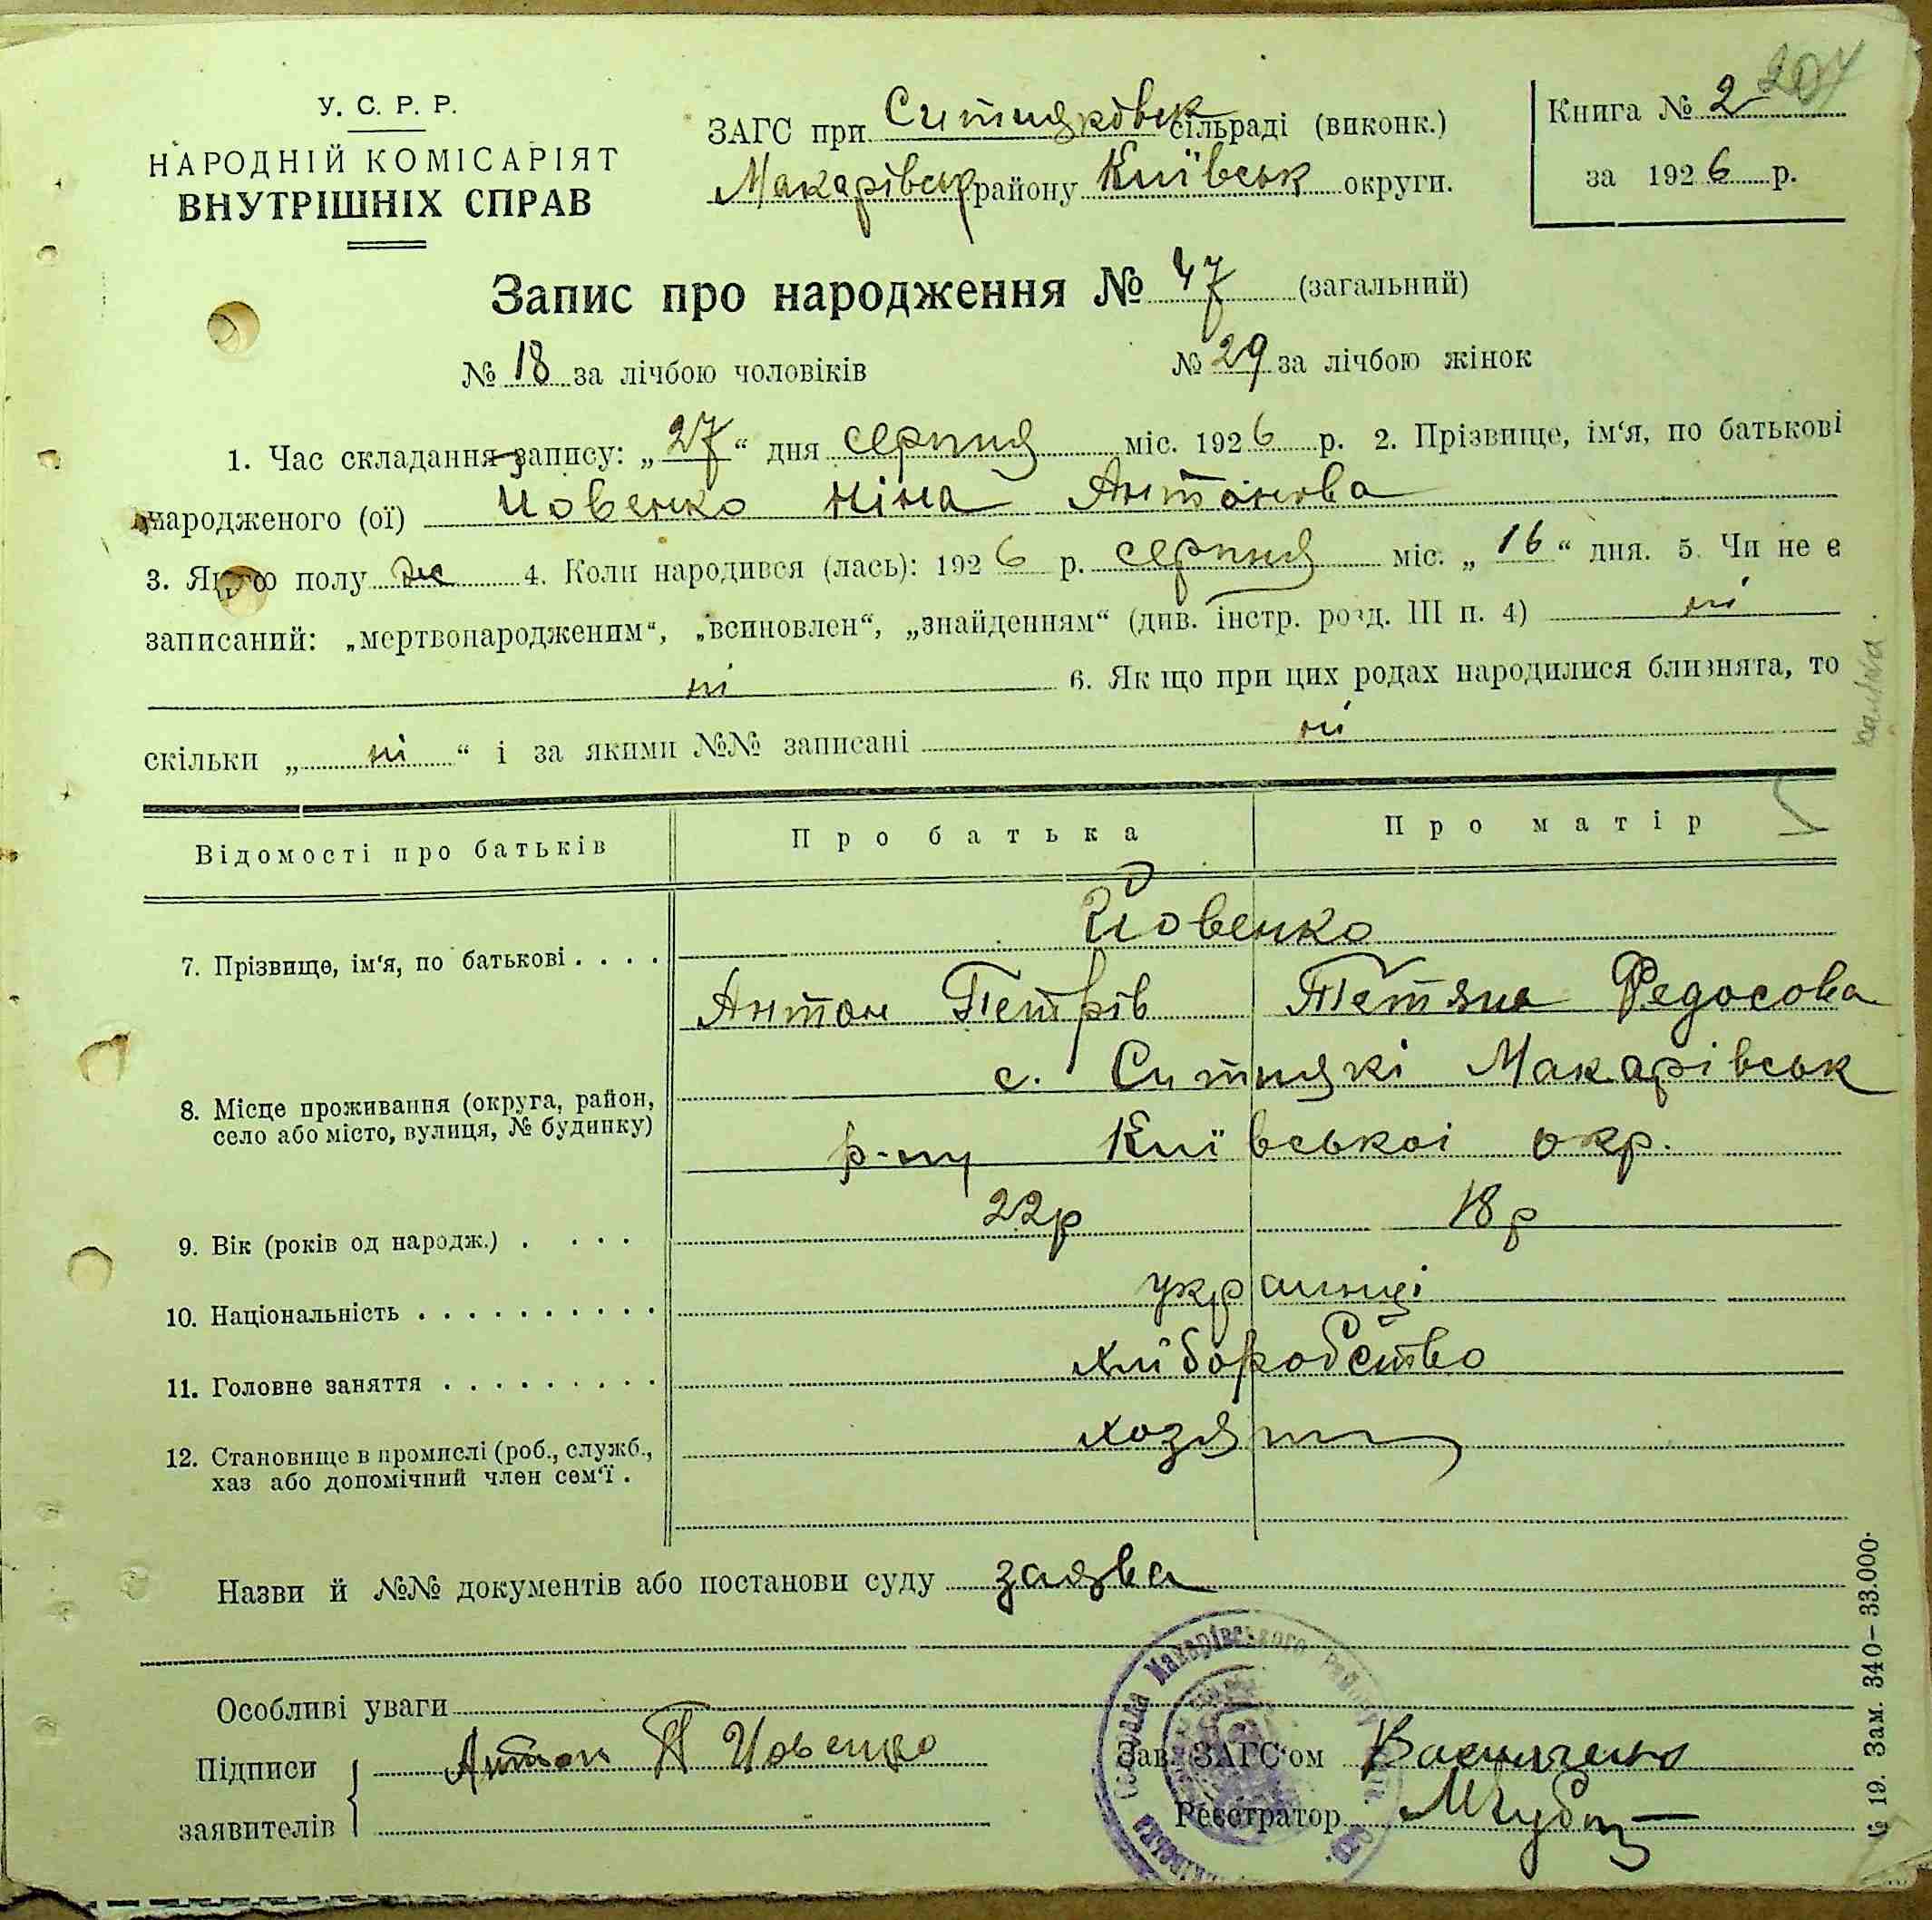 204
У. С. Р. Р.
НАРОДНІЙ КОМІСАРІЯТ
ВНУТРІШНІХ СПРАВ
ЗАГС при Ситняковск сільраді (виконк.)
Макарівськ району Київськ округи.
Книга № 2
за 1926 р.
Запис про народження № 47 (загальний)
№ 18 за лічбою чоловіків № 29 за лічбою жінок
1. Час складання запису: „27“ дня серпня міс. 1926 р. 2. Прізвище, ім‘я, по батькові
народженого (ої) Иовенко Ніна Антонова
3. Якого полу ж 4. Коли народився (лась): 1926 р. серпня міс. „16“ дня. 5. Чи не є
записаний: „мертвонародженим“, „всиновлен“, „знайденням“ (див. інстр. розд. III п. 4) ні
ні 6. Якщо при цих родах народилися близнята, то
скільки „ ні “ і за якими №№ записані ні
Відомості про батьків Про батька Про матір
Йовенко
7. Прізвище, ім‘я, по батькові . . . .
Антон Петрів Тетяна Федосова
с. Ситняки Макарівськ
8. Місце проживання (округа, район,
село або місто, вулиця, № будинку)
р-ну Київськоі окр.
9. Вік (років од народж.) . . . . 22р 18р
10. Національність . . . . . . . . . . украинці
11. Головне заняття . . . . . . . . . хліборобство
12. Становище в промислі (роб., служб.,
хаз або допомічний член сем‘ї .
Назви й №№ документів або постанови суду заява
Особливі уваги
Підписи
заявителів
Антон П Иовенко
Зав. ЗАГС‘ом Василенко
Реєстратор
Сільрада Макарівського району
№ 19. Зам. 340–33.000.